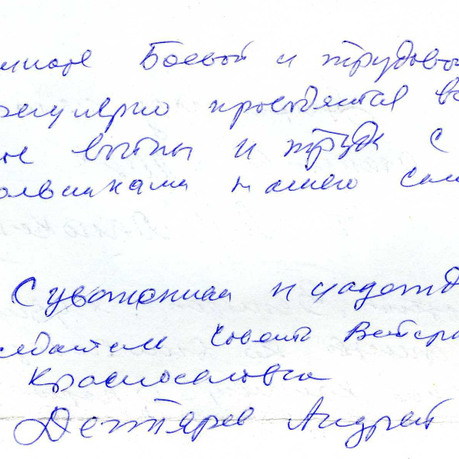 Боевой и трудово
регулярно проводятся в
войны и труда с
нашего сов
С уважением и надежд
седатель Совета Ветера
Красноселовка
Дегтярев Андрей